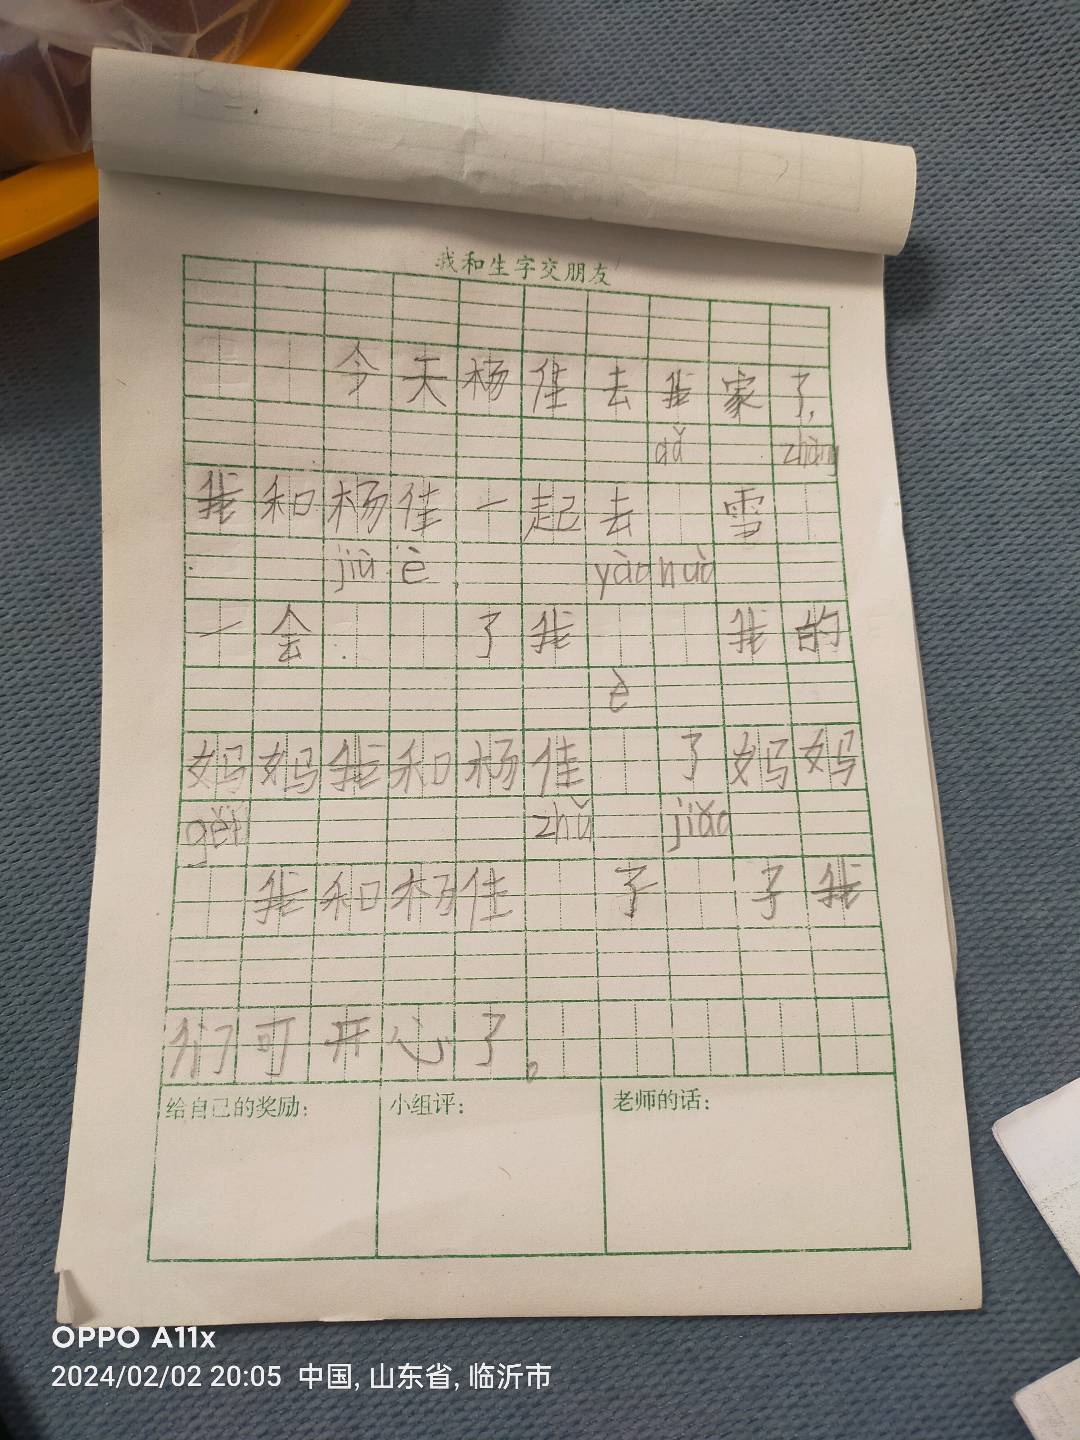 我和生字交朋友
今天杨佳去我家了，
dǎ zhàng
我和杨佳一起去 雪
jiù è yào huà
一会 了我 我的
è
妈妈我和杨佳 了妈妈
gěi zhǔ jiǎo
我和杨佳 子 子我
们可开心了。
给自己的奖励： 小组评： 老师的话：
OPPO A11x
2024/02/02 20:05 中国, 山东省, 临沂市